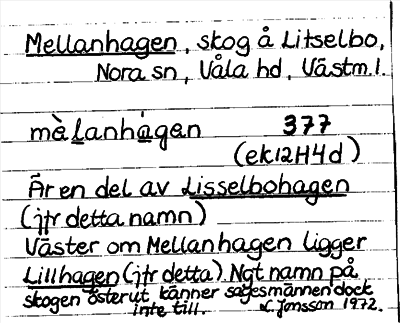 Mellanhagen, skog å Litselbo,
Nora sn, Våla hd, Västm.l.
mèlanhágen 377
(ek12H4d)
Är en del av Lisselbohagen
(jfr detta namn)
Väster om Mellanhagen ligger
Lillhagen (jfr detta). Ngt namn på
skogen österut känner sagesmännen dock
inte till. L Jonsson 1972.